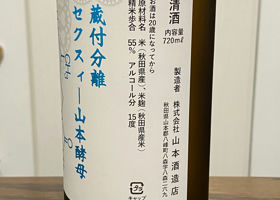 清酒
内容量
720ml
製造者
株式会社山本酒造店
秋田県山本郡八峰町八森字八森二六九
お酒は20歳になってから
原材料名 米(秋田県産)、米麹(秋田県産米)
精米歩合 55% アルコール分 15度
蔵付分離
セクスィー山本酵母
キャップ